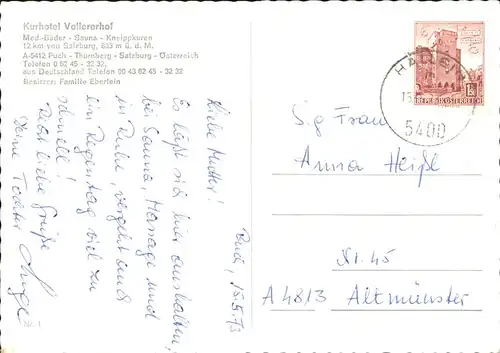 Kurhotel Vollererhof
Med.-Bäder - Sauna - Kneippkuren
12 km von Salzburg, 833 m ü. d. M.
A-5412 Puch - Thurnberg - Salzburg - Österreich
Telefon 0 62 45 - 32 32,
aus Deutschland Telefon 00 43 62 45 - 32 32
Besitzer: Familie Eberlein
Puch, 15.5.73
Liebe Mutter!
Es läßt sich hier aushalten,
bei Sauna, Massage und
in Ruhe, vergeht auch
ein Regentag viel zu
schnell!
Recht liebe Grüße
Deine Tochter Inge
HALLEIN
5400
REPUBLIK ÖSTERREICH
Sg Frau
Anna Heißl
Nr. 45
A 4813 Altmünster